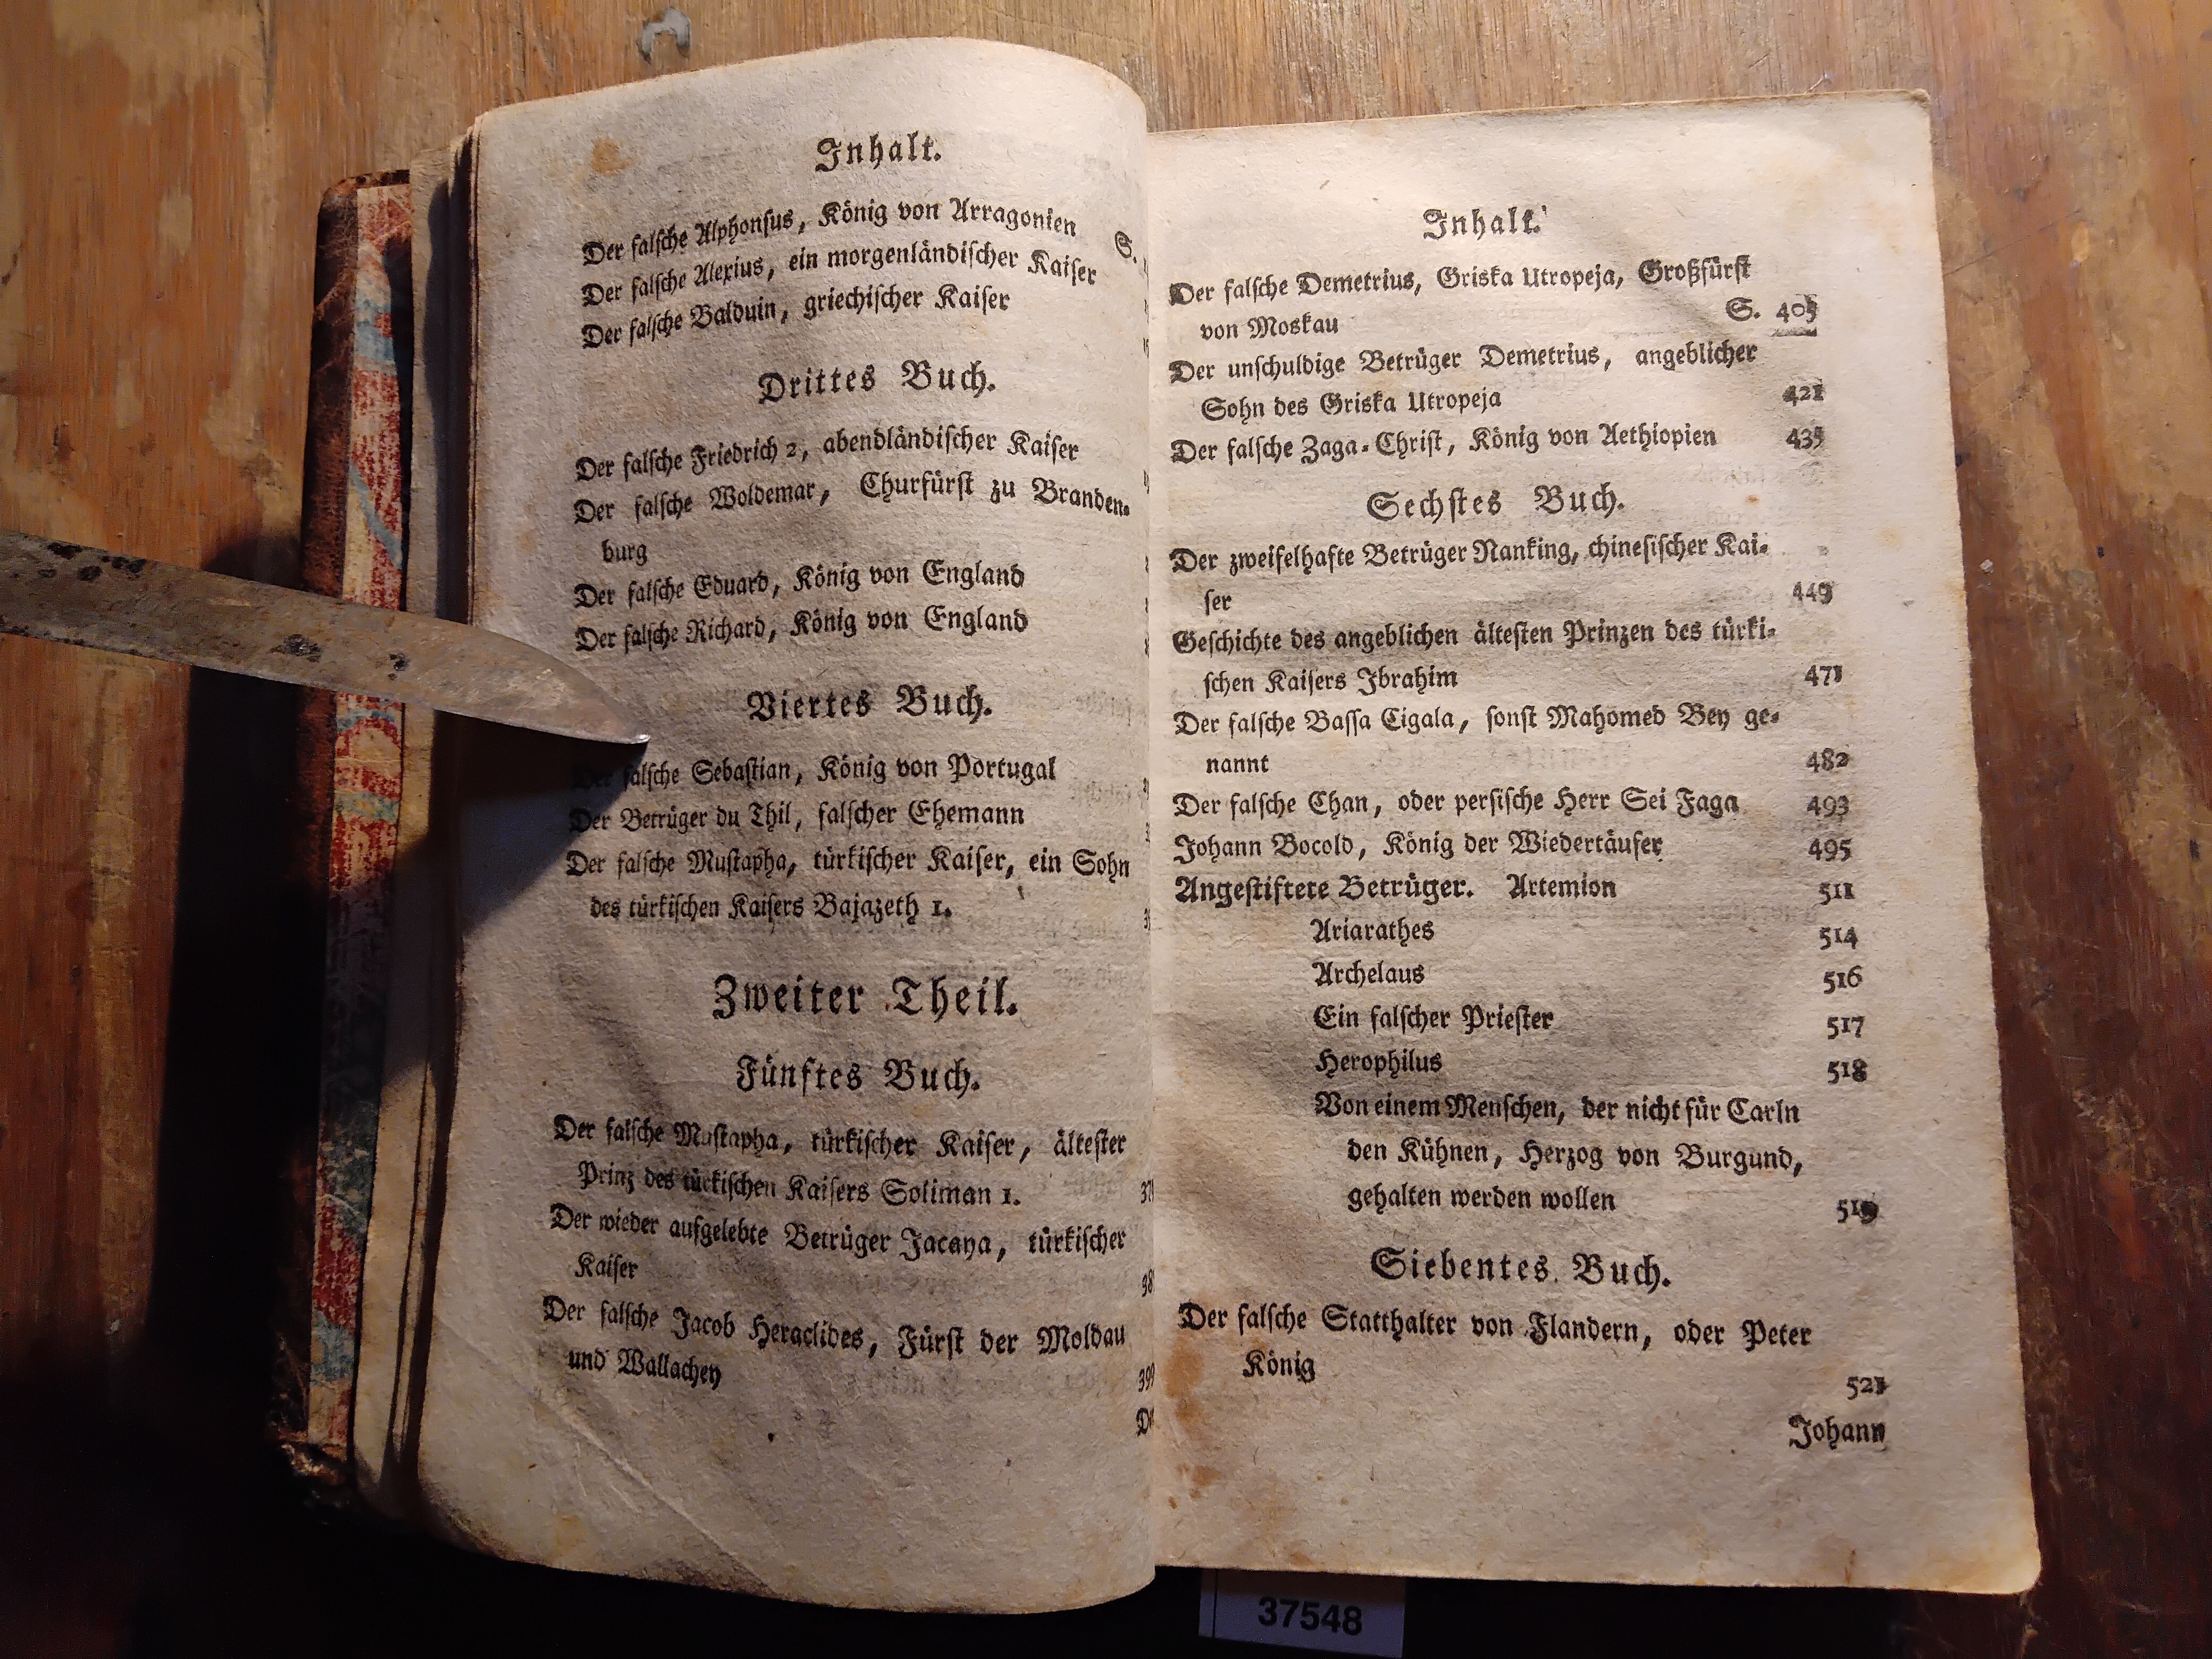 Inhalt.
Der falsche Alphonsus, König von Arragonien S.
Der falsche Alexius, ein morgenländischer Kaiser
Der falsche Balduin, griechischer Kaiser
Drittes Buch.
Der falsche Friedrich 2, abendländischer Kaiser
Der falsche Woldemar, Churfürst zu Branden-
burg
Der falsche Eduard, König von England
Der falsche Richard, König von England
Viertes Buch.
Der falsche Sebastian, König von Portugal
Der Betrüger du Thil, falscher Ehemann
Der falsche Mustapha, türkischer Kaiser, ein Sohn
des türkischen Kaisers Bajazeth 1.
Zweiter Theil.
Fünftes Buch.
Der falsche Mustapha, türkischer Kaiser, ältester
Prinz des türkischen Kaisers Soliman 1.
Der wieder aufgelebte Betrüger Jacaya, türkischer
Kaiser
Der falsche Jacob Heraclides, Fürst der Moldau
und Wallachey
Inhalt.
Der falsche Demetrius, Griska Utropeja, Großfürst
von Moskau S. 405
Der unschuldige Betrüger Demetrius, angeblicher
Sohn des Griska Utropeja 421
Der falsche Zaga-Christ, König von Aethiopien 435
Sechstes Buch.
Der zweifelhafte Betrüger Nanking, chinesischer Kai-
ser 449
Geschichte des angeblichen ältesten Prinzen des türki-
schen Kaisers Ibrahim 471
Der falsche Bassa Cigala, sonst Mahomed Bey ge-
nannt 482
Der falsche Chan, oder persische Herr Sei Faga 493
Johann Bocold, König der Wiedertäufer 495
Angestiftete Betrüger. Artemion 511
Ariarathes 514
Archelaus 516
Ein falscher Priester 517
Herophilus 518
Von einem Menschen, der nicht für Carln
den Kühnen, Herzog von Burgund,
gehalten werden wollen 519
Siebentes Buch.
Der falsche Statthalter von Flandern, oder Peter
König 521
Johann
37548